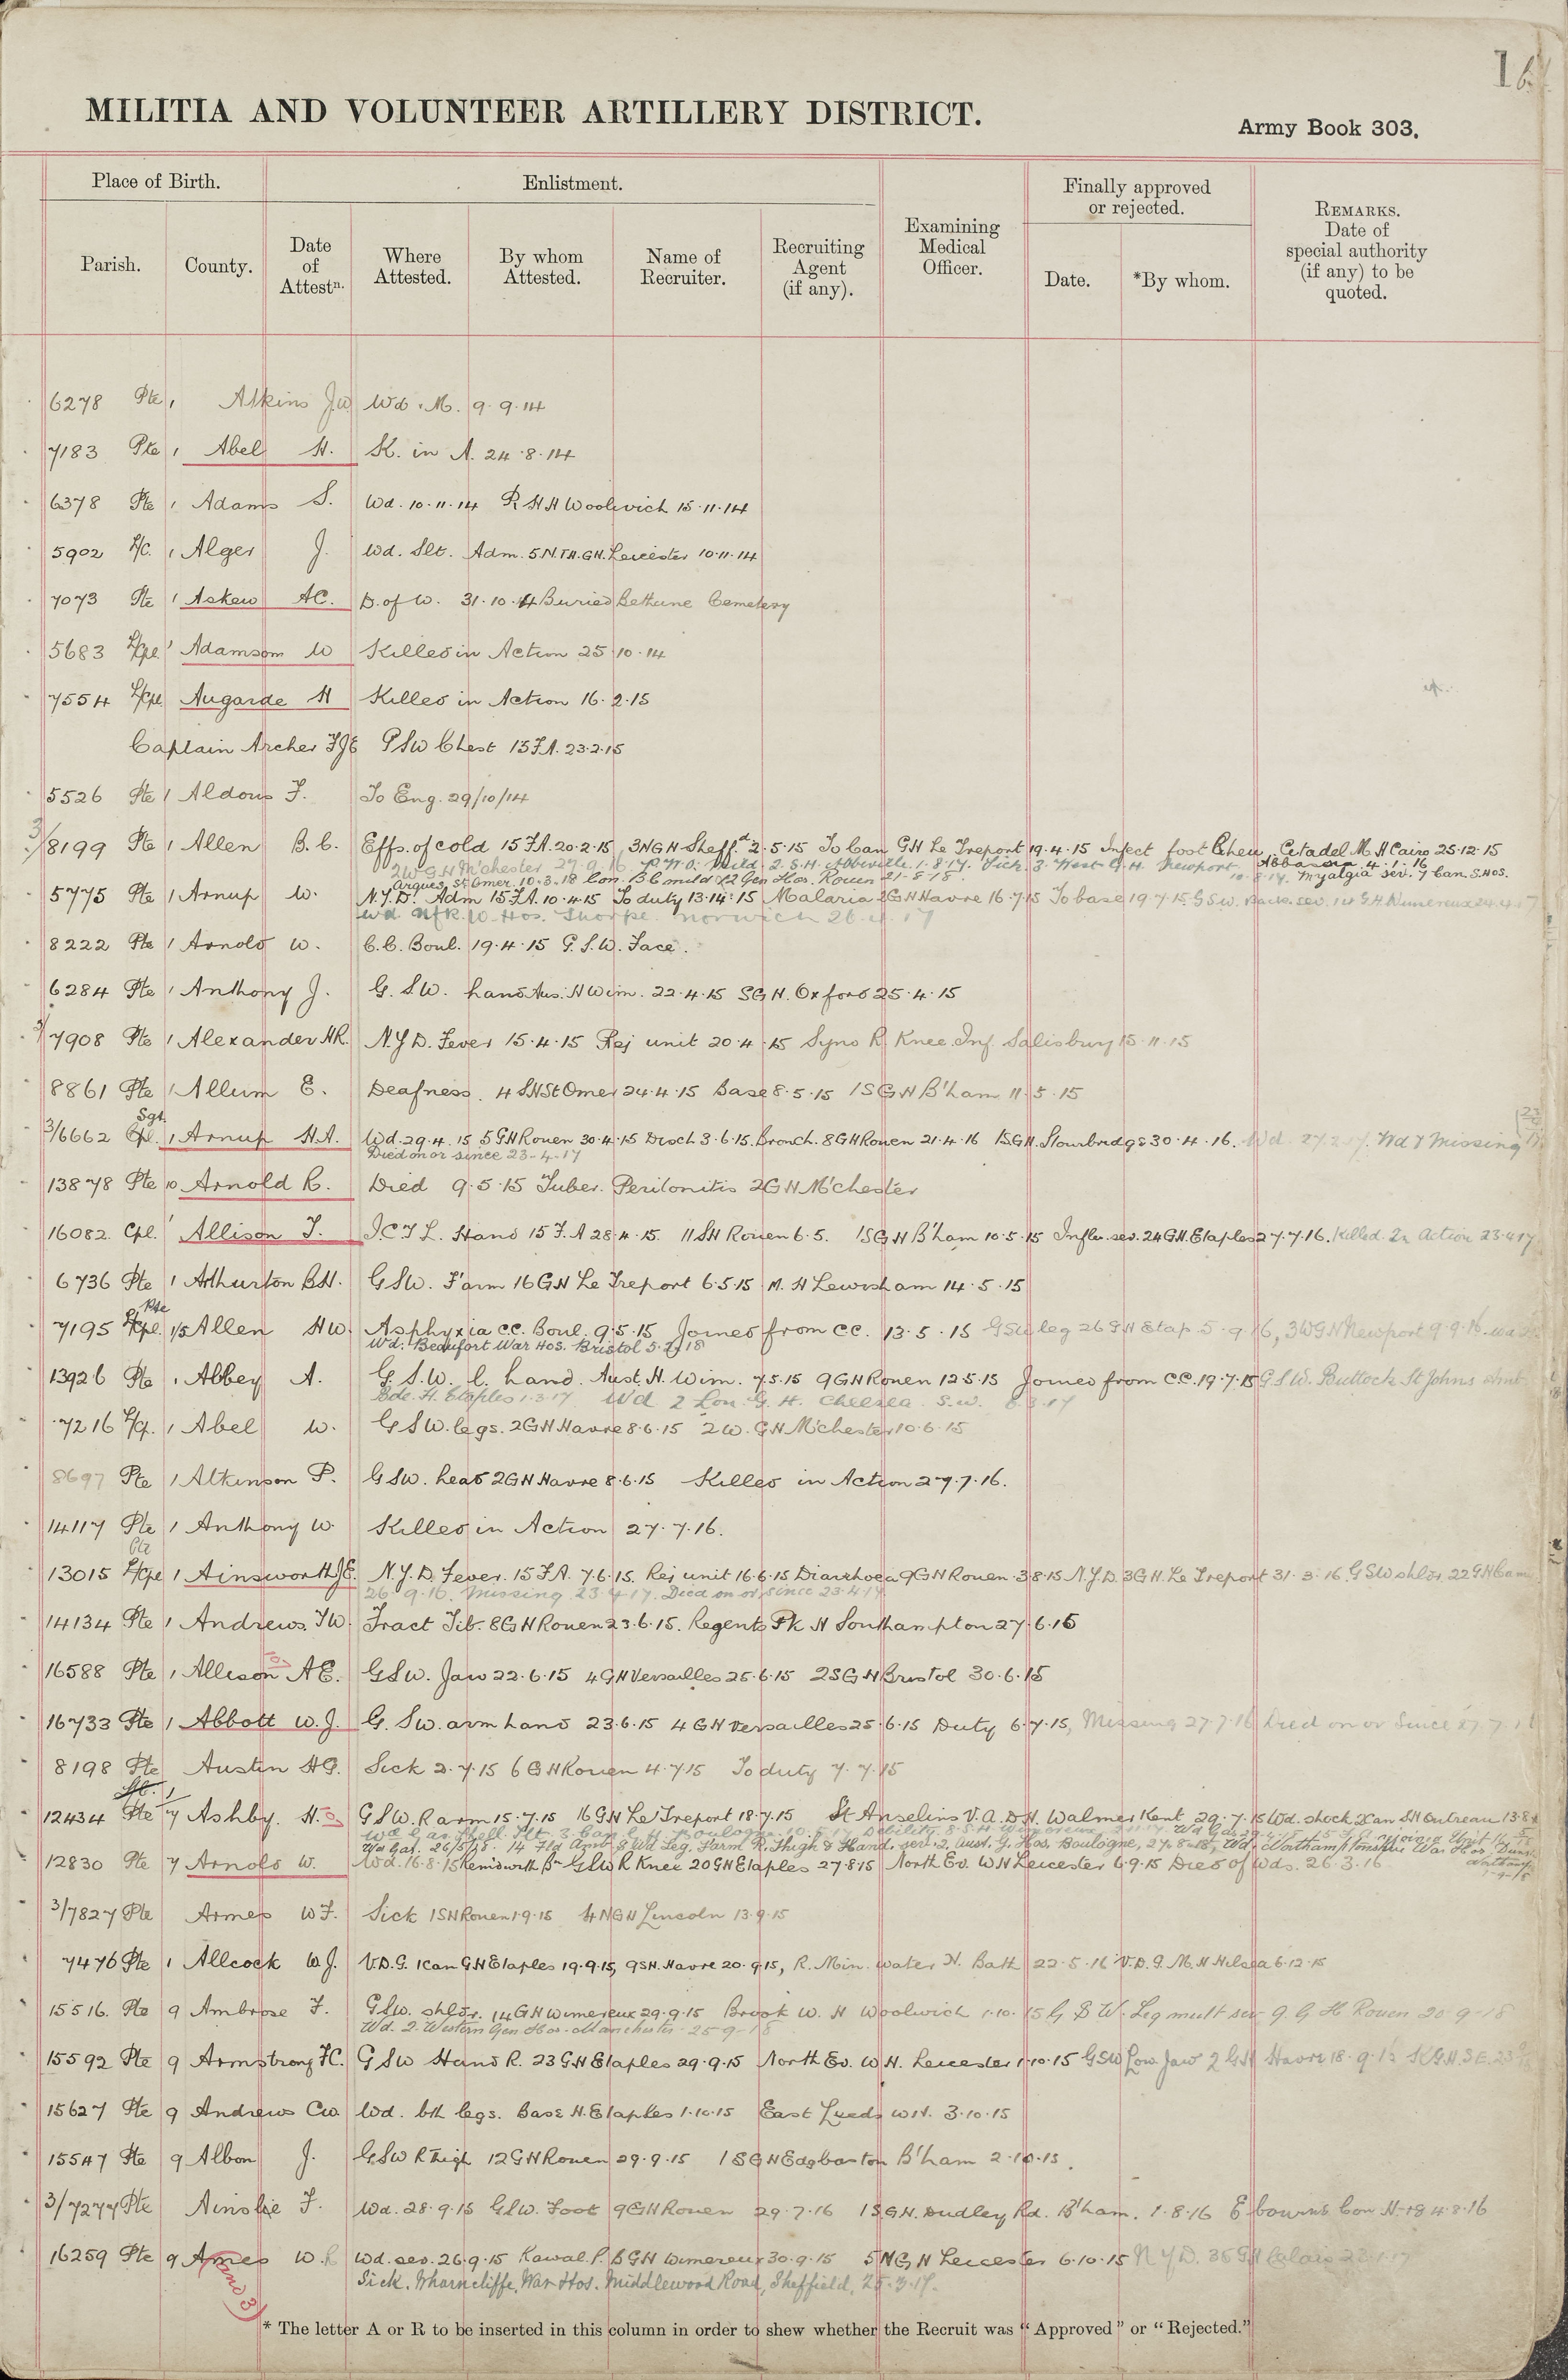 16
MILITIA AND VOLUNTEER ARTILLERY DISTRICT.
Army Book 303.
Place of Birth.
Enlistment.
Finally approved or rejected.
Parish.
County.
Date of Attestn.
Where Attested.
By whom Attested.
Name of Recruiter.
Recruiting Agent (if any).
Examining Medical Officer.
Date.
*By whom.
REMARKS. Date of special authority (if any) to be quoted.
6278 Pte 1 Atkins JW Wd. M. 9.9.14
7183 Pte 1 Abel H. K. in A. 24.8.14
6378 Pte 1 Adams S. Wd. 10.11.14 R H H Woolwich 15.11.14
5902 L/C. 1 Alger J. Wd. Slt. Adm. 5.N.TH.GH. Leicester 10.11.14
7073 Pte 1 Askew AC. D. of W. 31.10.14 Buried Bethune Cemetery
5683 L/Cpl 1 Adamson W Killed in Action 25.10.14
7554 L/Cpl Augarde H Killed in Action 16.2.15
Captain Archer FJE GSW Chest 15 F.A. 23.2.15
5526 Pte 1 Aldous F. To Eng. 29/10/14
3/8199 Pte 1 Allen B.C. Effs. of cold 15 F.A. 20.2.15 3NGH Sheffd 2.5.15 To Can GH Le Treport 19.4.15 Infect foot Citadel M H Cairo 25.12.15
2WGH M'chester 27.9.16 Mild. 2.S.H. Abbeville 1.8.17. Sick. 3 West G.H. Newport 10.8.17. Myalgia sev. 7 Can. S. Hos.
Arques St Omer. 10.3.18 mild 12 Gen Hos. Rouen 21.5.18.
5775 Pte 1 Arnup W. N.Y.D. Adm 15 F.A. 10.4.15 To duty 13.14.15 Malaria 2GH Havre 16.7.15 To base 19.7.15 GSW. Back. sev. 14 GH Wimereux 24.4.17
Wd Nfk. W. Hos. Thorpe. Norwich 26.4.17
8222 Pte 1 Arnold W. C.C. Boul. 19.4.15 G.S.W. Face.
6284 Pte 1 Anthony J. G.S.W. hand Aus. H Wim. 22.4.15 SGH. Oxford 25.4.15
3/7908 Pte 1 Alexander HR. N.Y.D. Fever 15.4.15 Rej unit 20.4.15 Syno R. Knee. Inf. Salisbury 15.11.15
8861 Pte 1 Allum E. Deafness. 4 SH St Omer 24.4.15 Base 8.5.15 1SGH B'ham 11.5.15
Sgt.
3/6662 Cpl. 1 Arnup H.A. Wd. 29.4.15 5GH Rouen 30.4.15 Disch 3.6.15. Bronch. 8GH Rouen 21.4.16 1SGH. Stourbridge 30.4.16. Wd & Missing
Died on or since 23-4-17
13878 Pte 10 Arnold R. Died 9.5.15 Tuber. Peritonitis 2GH M'chester
16082 Cpl. 1 Allison T. I.C.T L. Hand 15 F.A 28.4.15. 11 SH Rouen 6.5. 1SGH B'ham 10.5.15 Influ. sev. 24 GH. Etaples 27.7.16. Killed In Action 23.4.17
6736 Pte 1 Arthurton B.H. GSW. F'arm 16 GH Le Treport 6.5.15 M.H Lewisham 14.5.15
Pte
7195 L/Cpl. 1/5 Allen HW. Asphyxia C.C. Boul. 9.5.15 Joined from CC. 13.5.15 GSW leg 26 GH Etap. 5.9.16, 3WGH Newport 9.9.16.
Wd. Beaufort War Hos. Bristol 5.7.18
13926 Pte 1 Abbey A. G.S.W. l. hand. Aust. H. Wim. 7.5.15 9GH Rouen 12.5.15 Joined from C.C. 19.7.15 G.S.W. Buttock St Johns Amb
Bde. H. Etaples 1.3.17 Wd 2 Lon. G.H. Chelsea. S.W. 8.3.17
7216 L/C. 1 Abel W. GSW. legs. 2GH Havre 8.6.15 2W.GH M'chester 10.6.15
8697 Pte 1 Atkinson P. GSW. head 2GH Havre 8.6.15 Killed in Action 27.7.16.
14117 Pte 1 Anthony W. Killed in Action 27.7.16.
Pte
13015 L/Cpl 1 Ainsworth JE. N.Y.D. Fever. 15 F.A. 7.6.15. Rej unit 16.6.15 Diarrhoea 9GH Rouen 3.8.15 N.Y.D. 3GH. Le Treport 31.3.16. GSW shldr 22 GH Cam
26.9.16. Missing 23.4.17. Died on or since 23.4.17
14134 Pte 1 Andrews TW. Fract Tib. 8GH Rouen 23.6.15. Regents Pk H Southampton 27.6.15
16588 Pte 1 Allison AE. GSW. Jaw 22.6.15 4GH Versailles 25.6.15 2SGH Bristol 30.6.15
16733 Pte 1 Abbott W.J. G.SW. arm hand 23.6.15 4GH Versailles 25.6.15 Duty 6.7.15, Missing 27.7.16 Died on or Since 27.7.16
8198 Pte Austin HG. Sick 2.7.15 6GH Rouen 4.7.15 To duty 7.7.15
12434 Pte 7 Ashby. H. GSW. R arm 15.7.15 16GH Le Treport 18.7.15 St Anselms V.A.D.H. Walmer Kent 29.7.15 Wd. shock 2 Can SH Outreau 13.8
Wd Gas. 26/5/18. 14 Fld Amb. Wd Leg. F'arm R. Thigh & Hand. sev. 2. Aust. G. Hos. Boulogne, 27.8.18, Wd. Northamptonshire War Hos. Duns.
12830 Pte 7 Arnold W. Wd. 16.8.15 GSW R Knee 20GH Etaples 27.8.15 North Ev. WH Leicester 6.9.15 Died of Wds. 26.3.16
3/7827 Pte Armes WF. Sick 1SH Rouen 1.9.15 4NGH Lincoln 13.9.15
7476 Pte 1 Allcock W.J. V.D.G. 1 Can GH Etaples 19.9.15, 9SH. Havre 20.9.15, R. Min. Water H. Bath 22.5.16 V.D.G. M.H Hilsea 6.12.15
15516. Pte 9 Ambrose F. GSW. shldr. 14GH Wimereux 29.9.15 Brook W.H Woolwich 1.10.15 G S W. Leg mult sev 9 G H Rouen 20-9-18
Wd. 2. Western Gen Hos. Manchester 25-9-18
15592 Pte 9 Armstrong FC. GSW Hand R. 23GH Etaples 29.9.15 North Ev. WH. Leicester 1.10.15 GSW Low. Jaw 2 GH Havre 18.9.18
15627 Pte 9 Andrews CW. Wd. bth legs. Base H. Etaples 1.10.15 East Leeds WH. 3.10.15
15547 Pte 9 Albon J. GSW R Thigh 12GH Rouen 29.9.15 1SGH Edgbaston B'ham 2.10.15.
3/7277 Pte Ainslie F. Wd. 28.9.15 GSW. Foot 9GH Rouen 29.7.16 1SGH. Dudley Rd. B'ham. 1.8.16 E'bourne Con H. 4.8.16
16259 Pte 9 Ames W.R Wd. sev. 26.9.15 Rawal P. BGH Wimereux 30.9.15 5NGH Leicester 6.10.15 N.Y.D. 35GH Calais 22.1.17
Sick. Wharncliffe War Hos. Middlewood Road, Sheffield, 25.3.17.
* The letter A or R to be inserted in this column in order to shew whether the Recruit was “Approved” or “Rejected.”